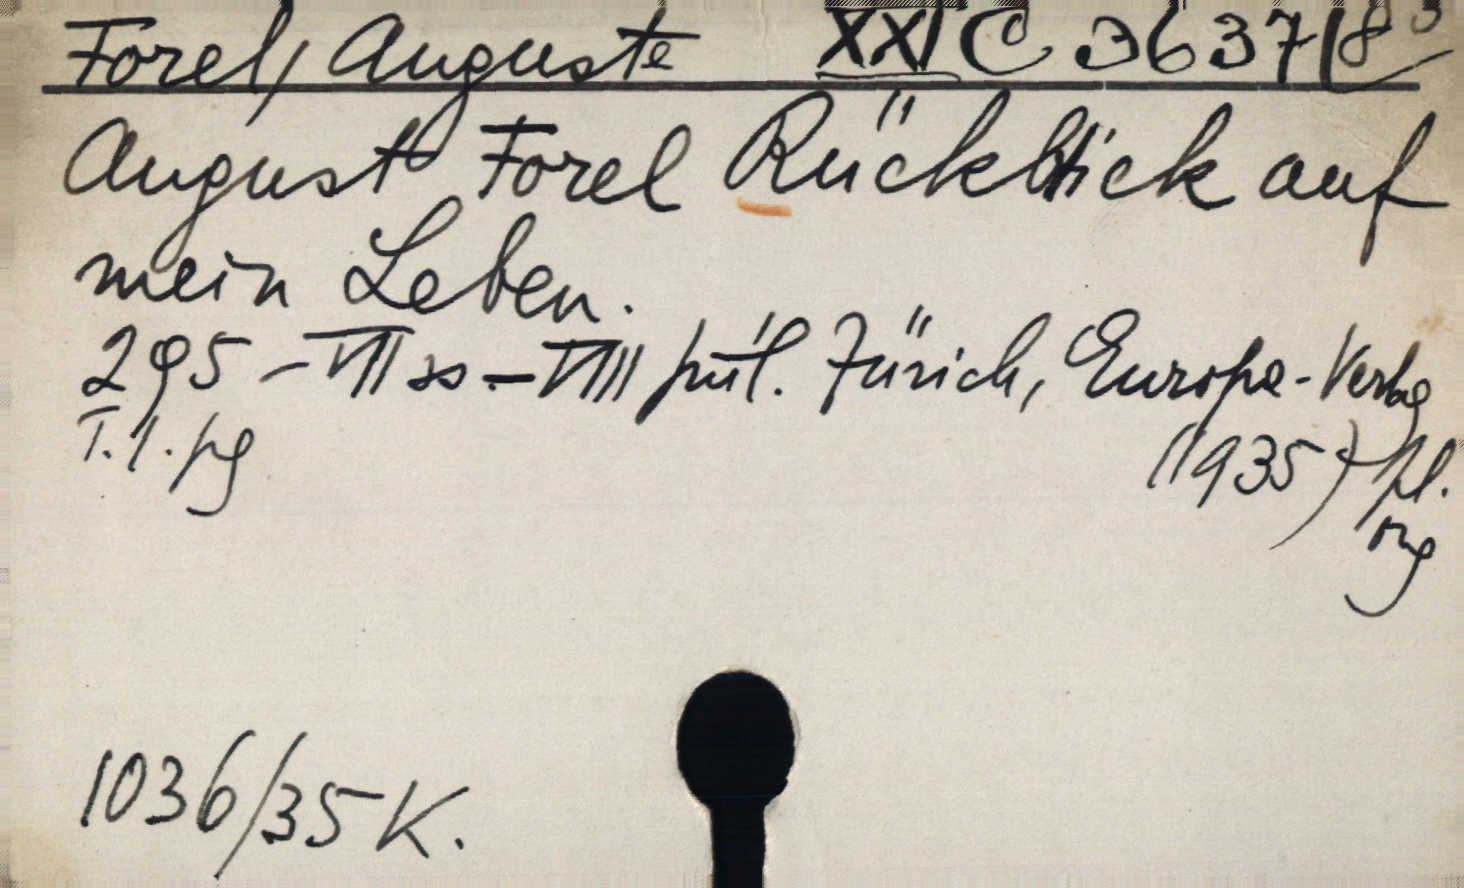 Forel, Auguste XXI C 3637/8°
August Forel Rückblick auf
mein Leben.
295 - VII - VIII příl. Zürich, Europa-Verlag
T. 1. pg (1935) pl.
1036/35 K.